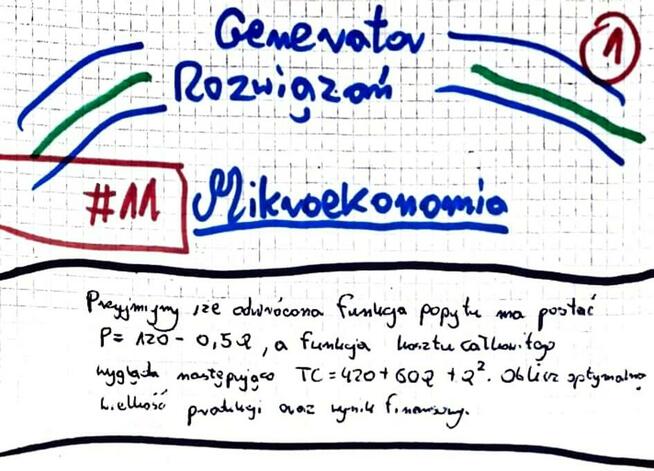 Generator
1
Rozwiązań
#11
Mikroekonomia
Przyjmijmy, że odwrócona funkcja popytu ma postać
P = 120 - 0,5Q, a funkcja kosztu całkowitego
wygląda następująco TC = 420 + 60Q + Q². Oblicz optymalną
wielkość produkcji oraz wynik finansowy.